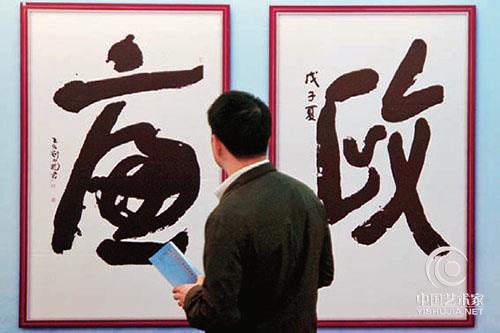 廉
政
戊子夏
中国艺术家
YISHUJIA.NET